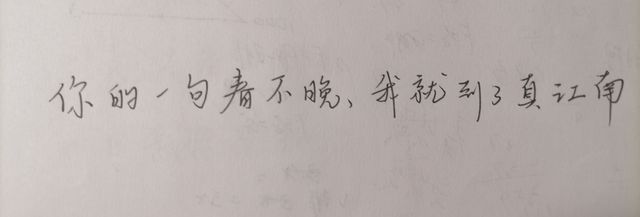 你的一句春不晚、我就到了真江南